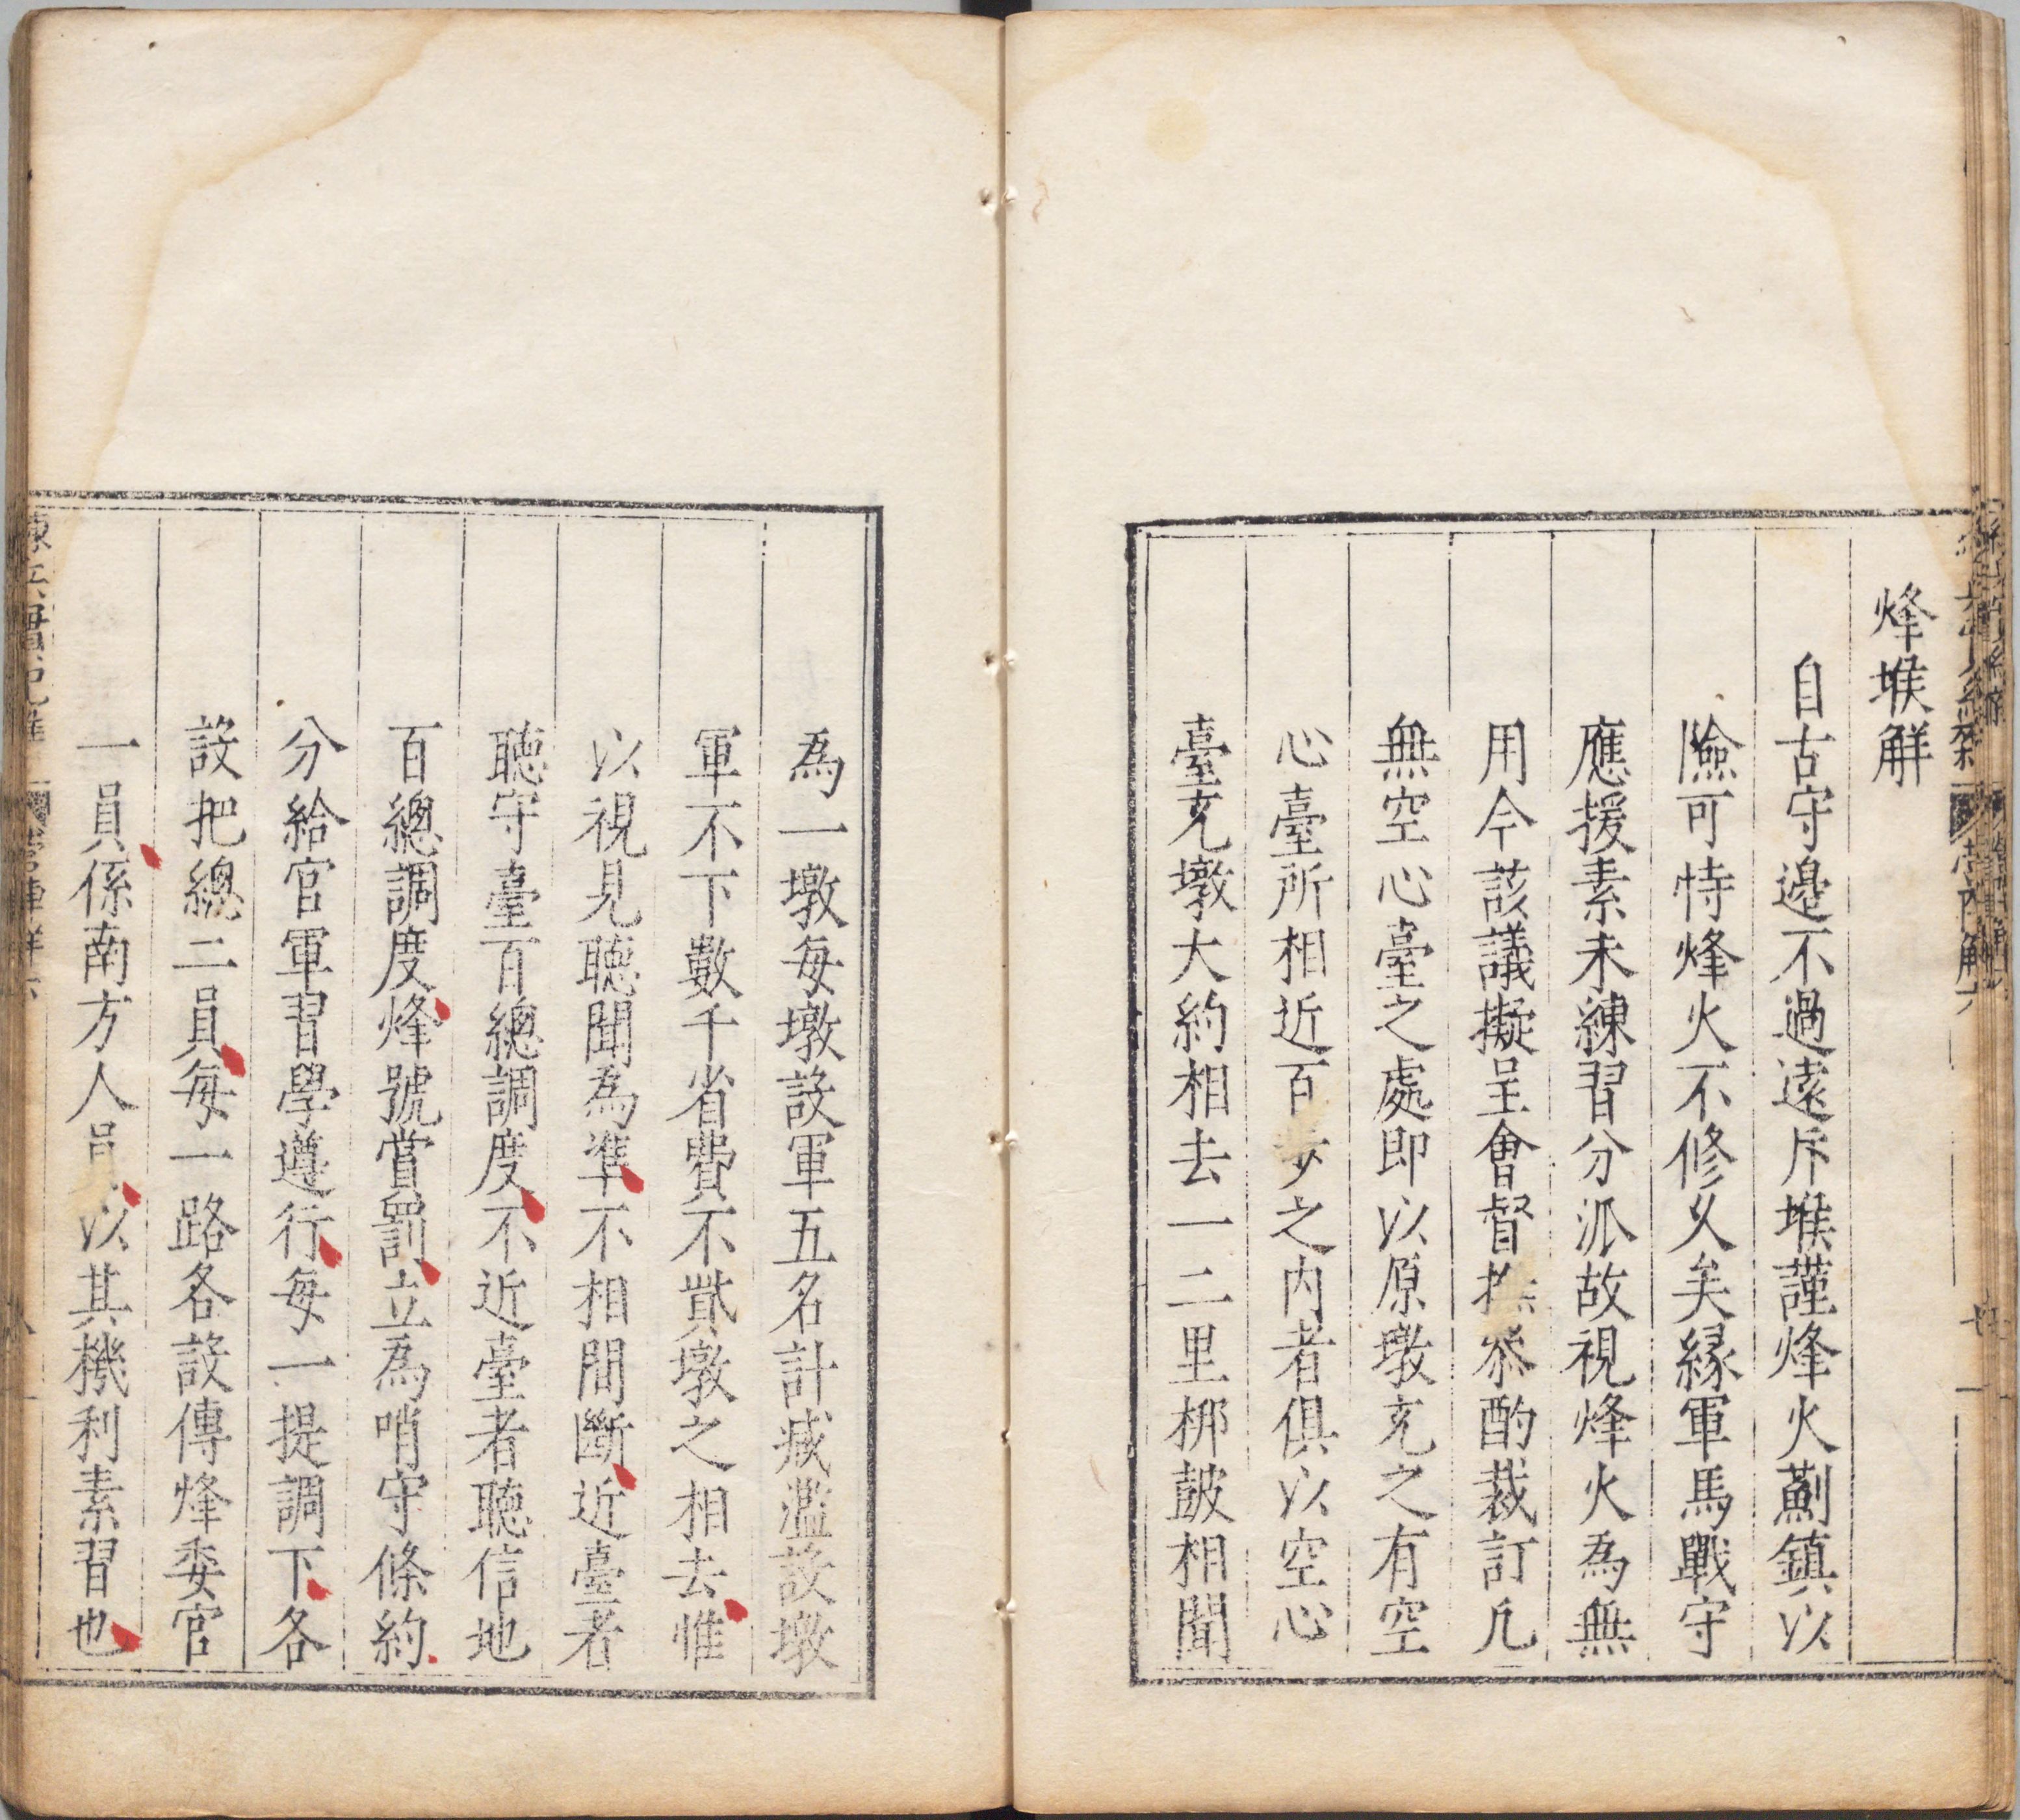 烽堠解
自古守邊不過遠斥堠謹烽火薊鎮以
險可恃烽火不修久矣緣軍馬戰守
應援素未練習分派故視烽火為無
用今該議擬呈會督撫叅酌裁訂凡
無空心臺之處即以原墩充之有空
心臺所相近百步之內者俱以空心
臺充墩大約相去一二里梆皷相聞
為一墩每墩設軍五名計減濫設墩
軍不下數千省費不貲墩之相去惟
以視見聽聞為準不相間斷近臺者
聽守臺百總調度不近臺者聽信地
百總調度烽號賞罰立為哨守條約
分給官軍習學遵行每一提調下各
設把總二員每一路各設傳烽委官
一員係南方人員以其機利素習也